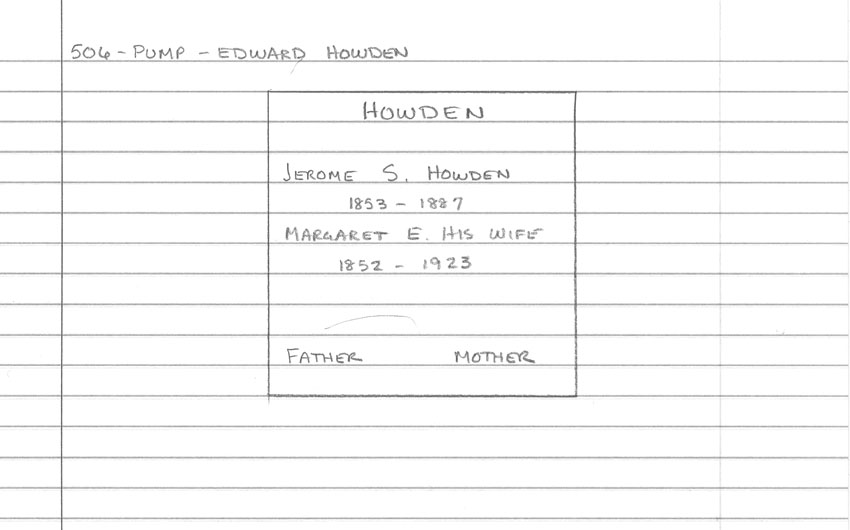 506 - PUMP - EDWARD HOWDEN
HOWDEN
JEROME S. HOWDEN
1853 - 1887
MARGARET E. HIS WIFE
1852 - 1923
FATHER MOTHER